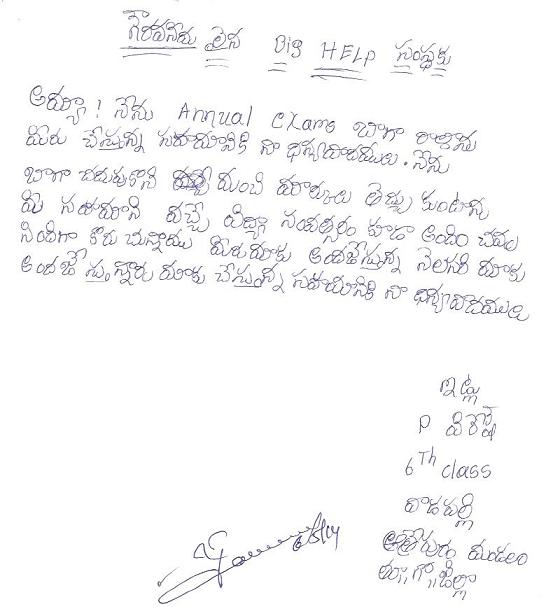 గౌరవనీయు లైన Big HELP సంస్థకు
అయ్యా! నేను Annual Exams బాగా రాశాను
మీరు చేస్తున్న సహాయానికి నా ధన్యవాదములు. నేను
బాగా చదువుకొని మంచి మార్కులు తెచ్చు కుంటాను
మీ సహాయాని వచ్చే విద్యా సంవత్సరం కూడా అందించవల
సిందిగా కోరుచున్నాము మీరు మాకు అందజేస్తున్న నెలసరి మాకు
అందజేస్తున్నారు మాకు చేస్తున్న సహాయానికి నా ధన్యవాదములు
ఇట్లు
P
6Th class
వాడపల్లి
ఆత్రేయపురం మండలం
తూ,,గో,,జిల్లా